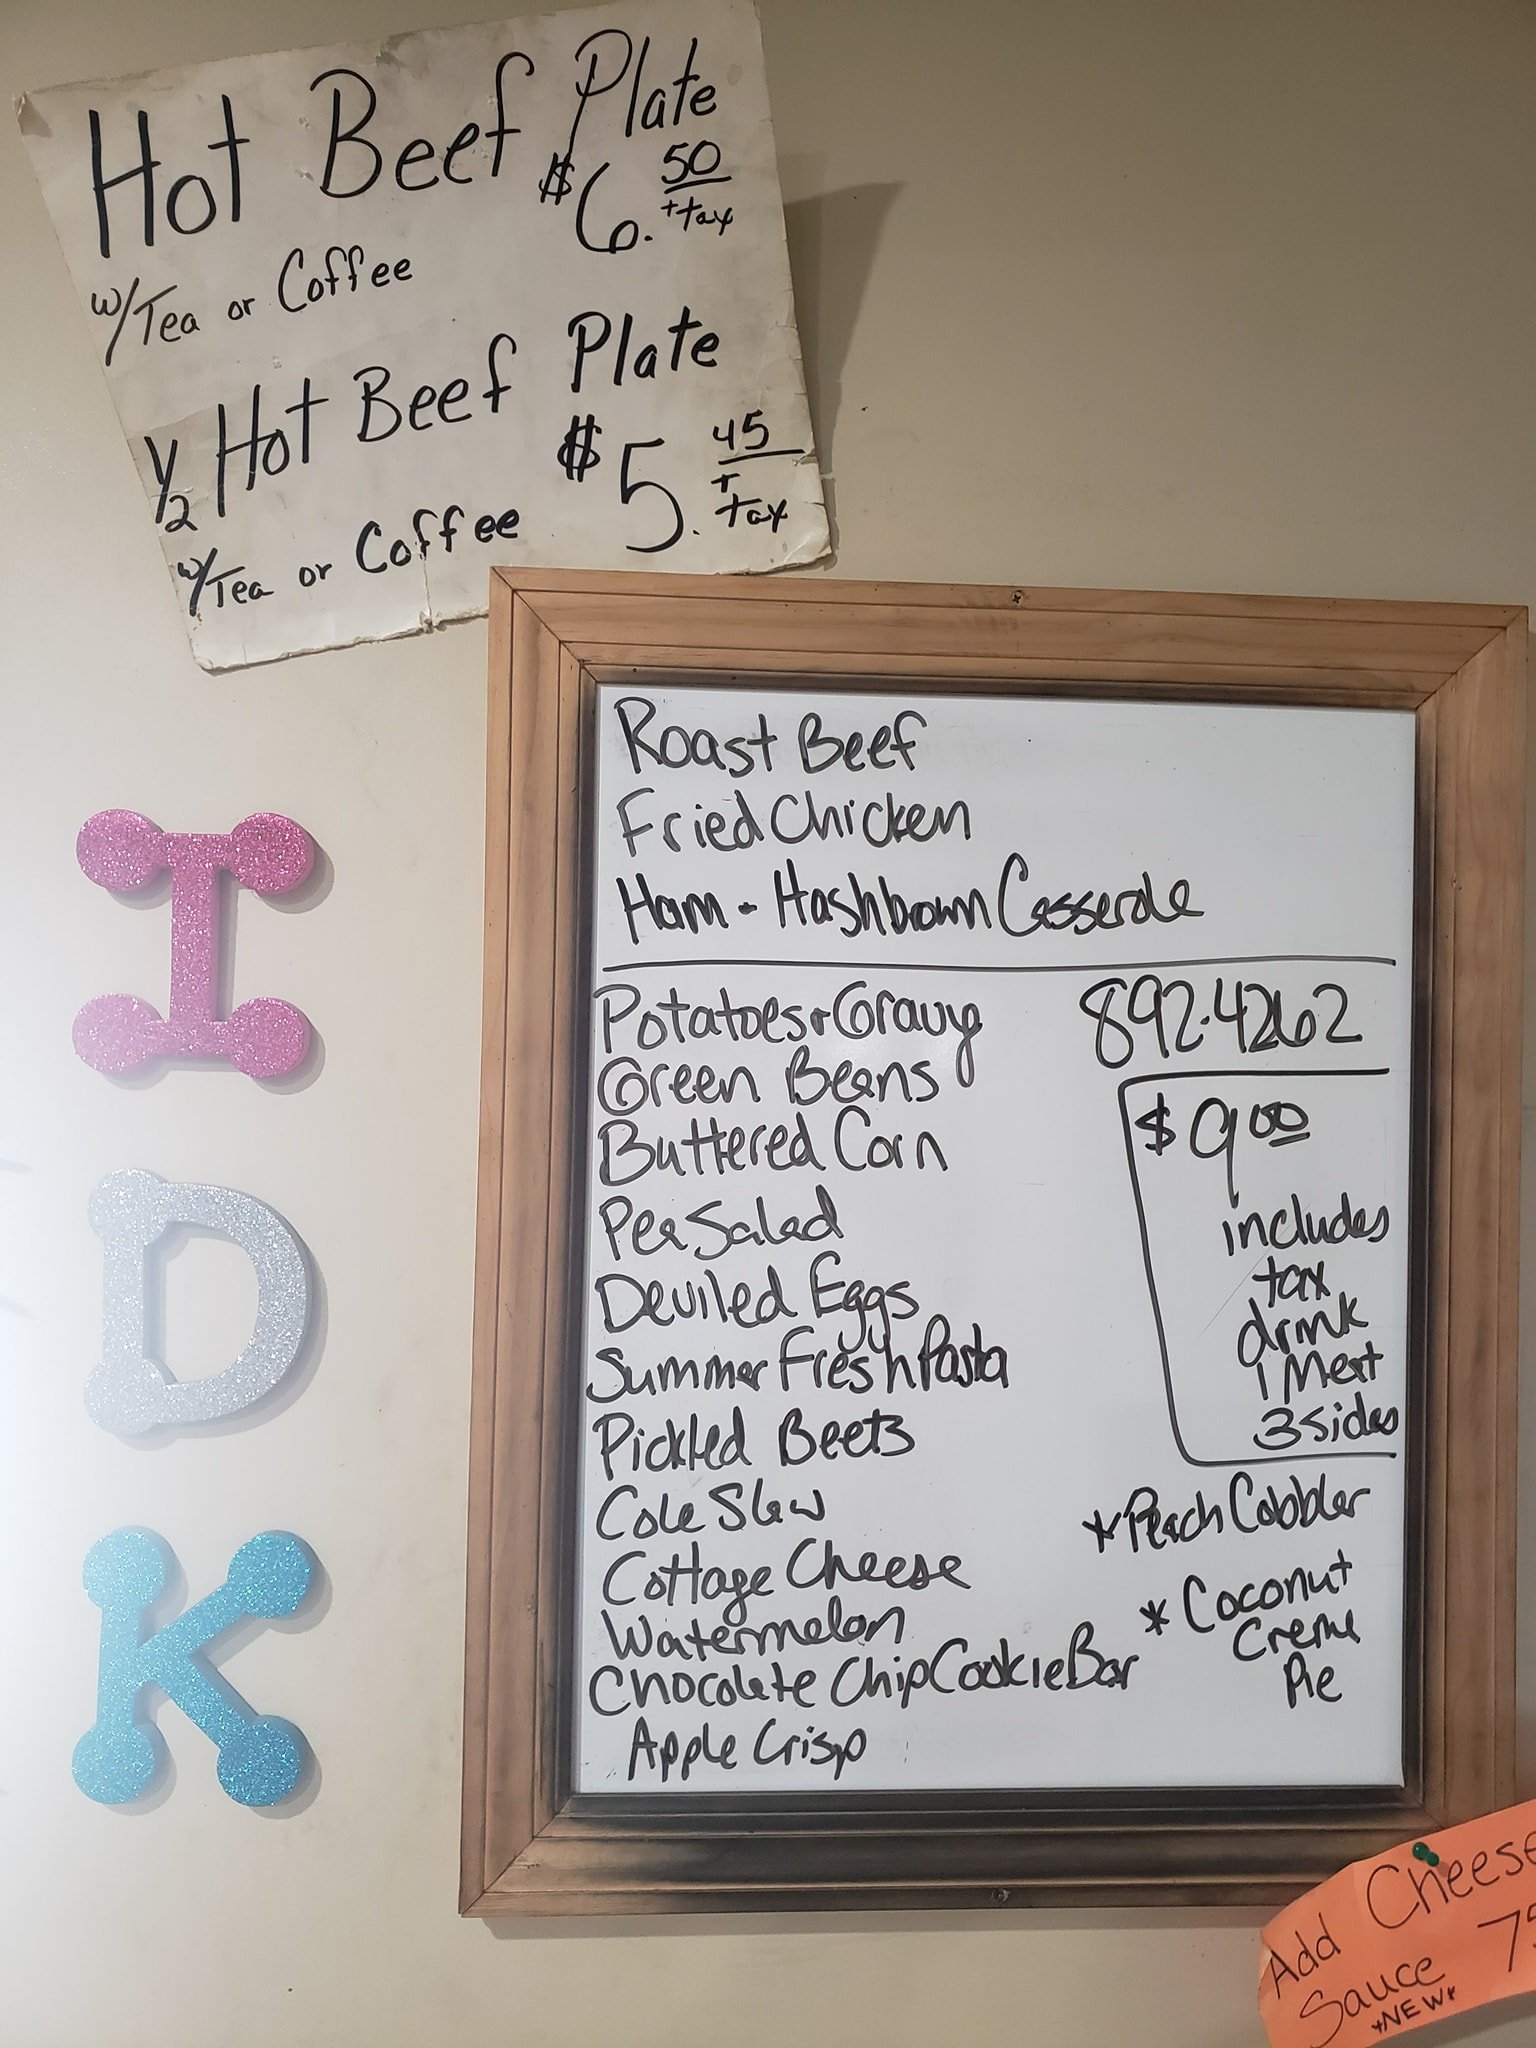 Hot Beef Plate
$6.50
+tax
w/Tea or Coffee
1/2 Hot Beef Plate
$5.45
+
tax
w/Tea or Coffee
I
D
K
Roast Beef
Fried Chicken
Ham - Hashbrown Casserole
Potatoes + Gravy
892-4262
Green Beans
Buttered Corn
Pea Salad
Deviled Eggs
Summer Fresh Pasta
Pickled Beets
Cole Slaw
Cottage Cheese
Watermelon
Chocolate Chip Cookie Bar
Apple Crisp
$9.00
includes
tax
drink
1 Meat
3 sides
*Peach Cobbler
* Coconut
Creme
Pie
Add Cheese
Sauce
*NEW*